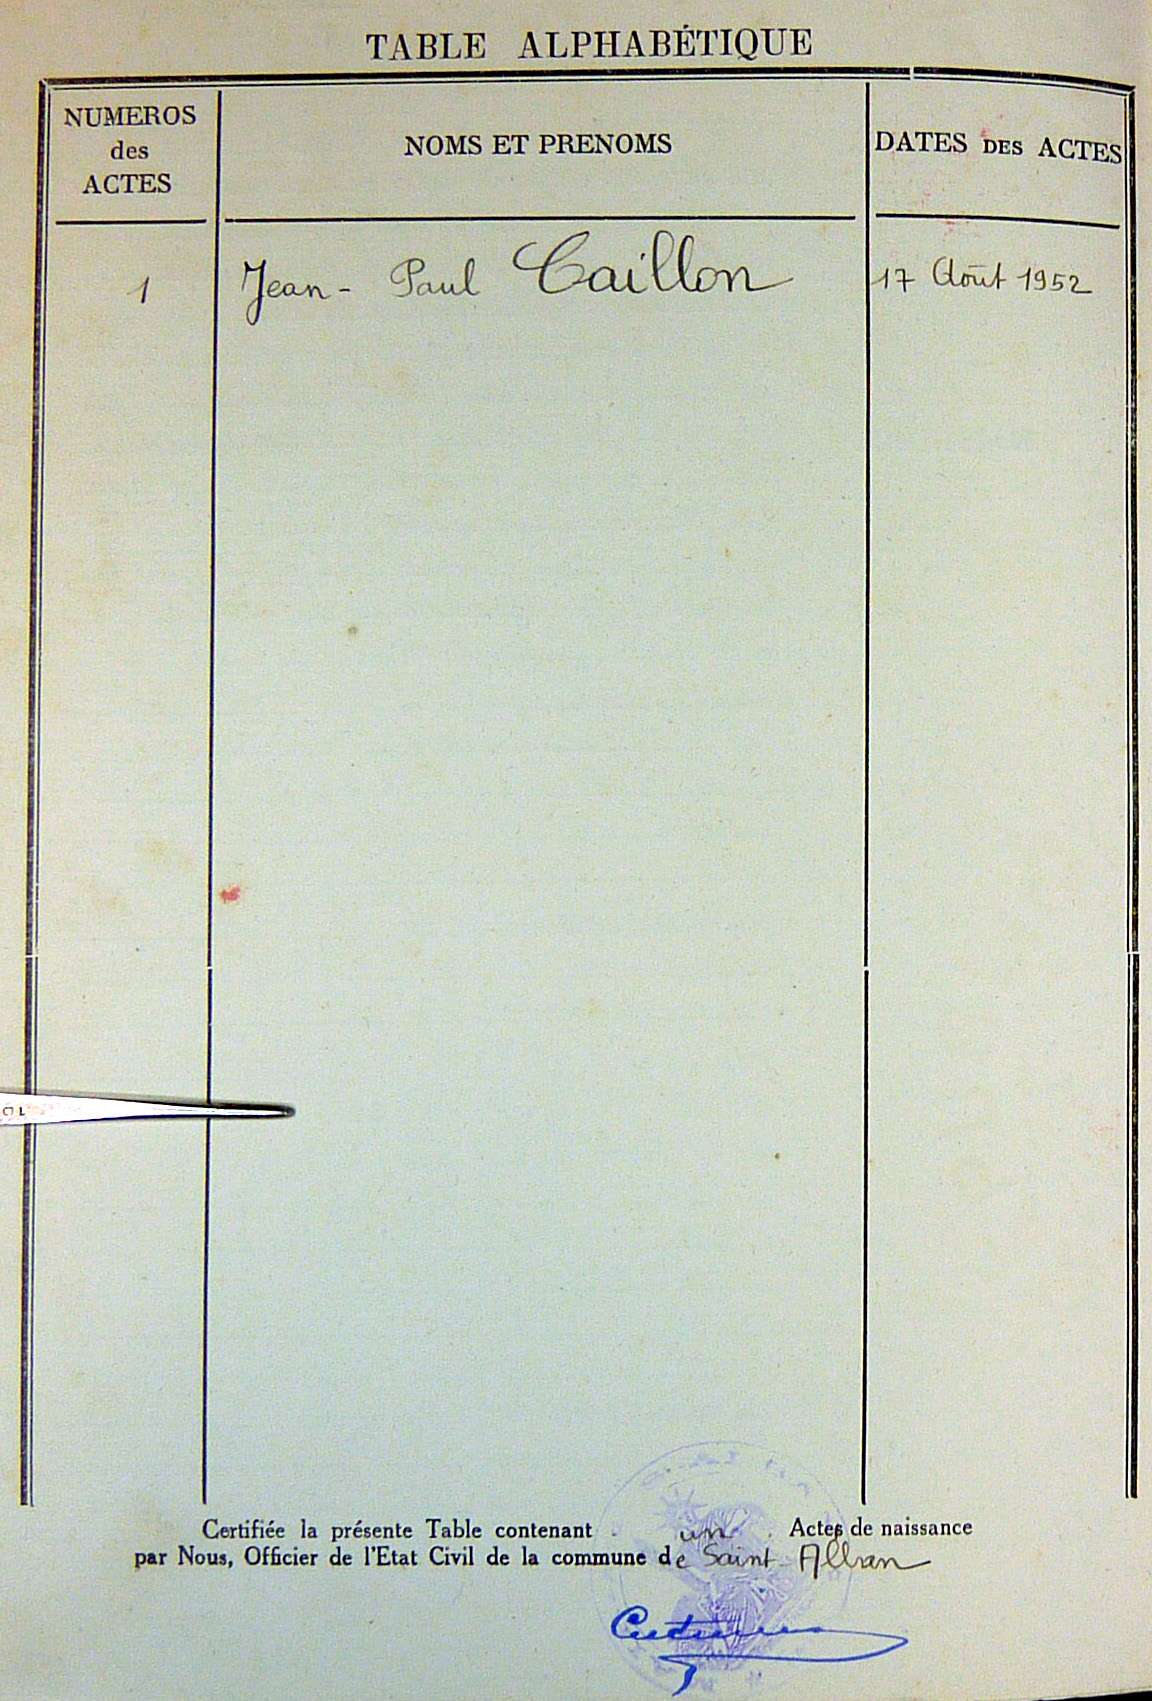 TABLE ALPHABÉTIQUE
NUMEROS
des
ACTES
NOMS ET PRENOMS
DATES DES ACTES
1 Jean-Paul Caillon 17 Août 1952
Certifiée la présente Table contenant un Actes de naissance
par Nous, Officier de l'Etat Civil de la commune de Saint-Alban